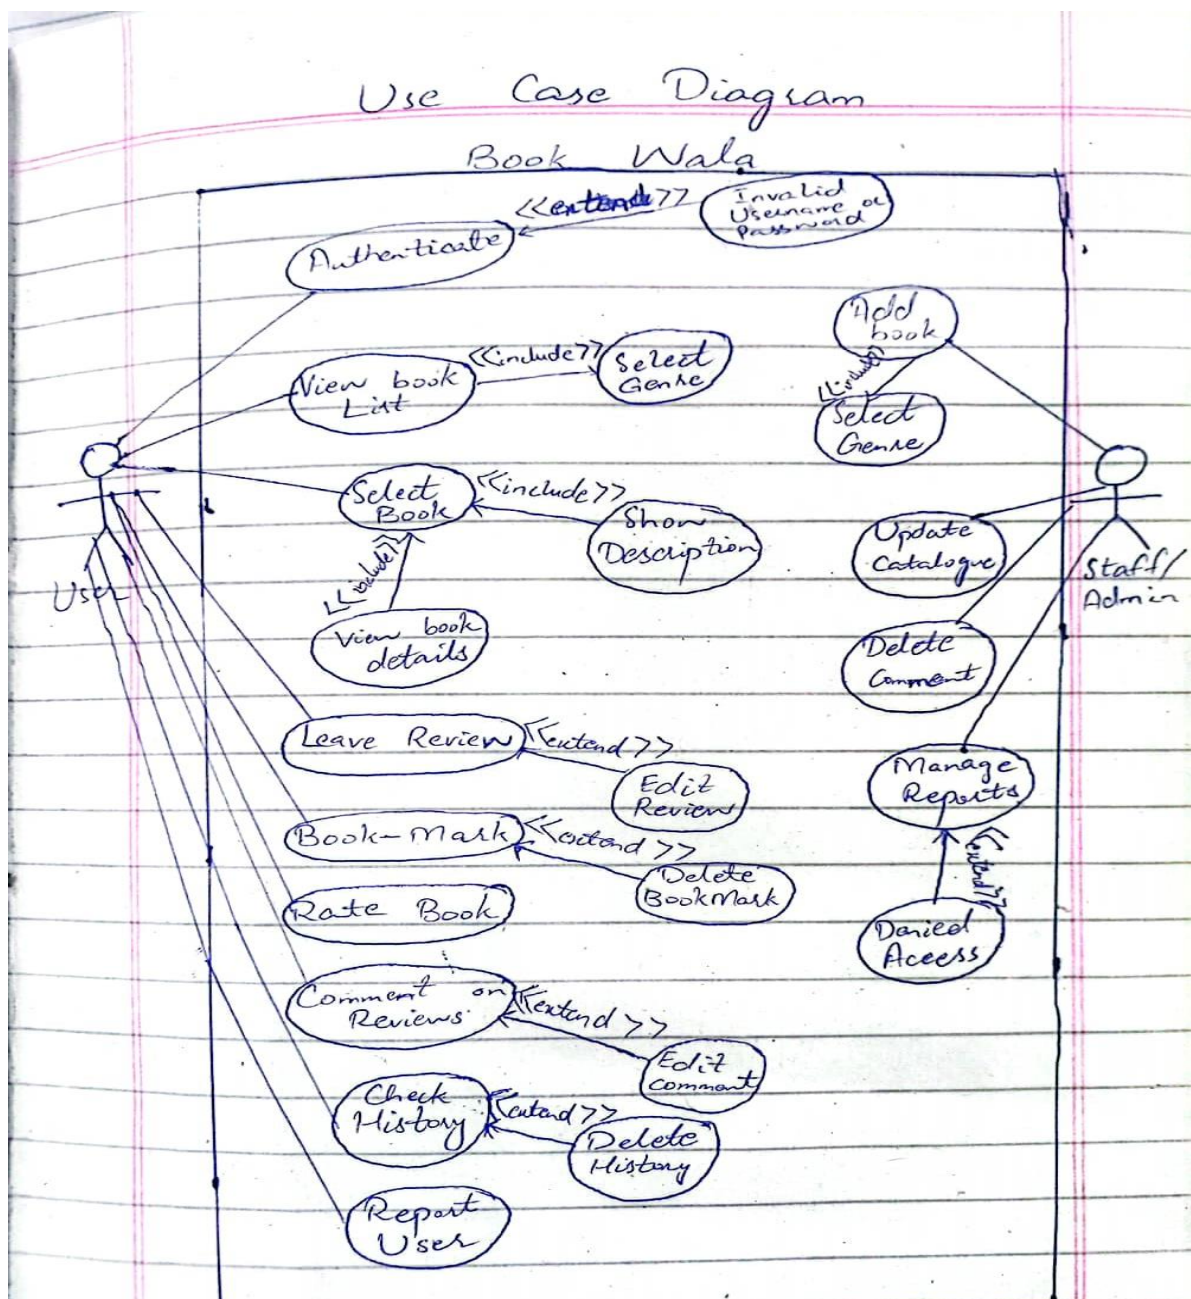 Use Case Diagram
Book Wala
<<extend>>
Invalid
Username or
Password
Authenticate
Add
book
<<include>>
Select
Genre
View book
List
<<include>>
Select
Genre
Select
Book
<<include>>
Show
Description
<<include>>
View book
details
User
Update
Catalogue
Staff/
Admin
Delete
Comment
Leave Review
<<extend>>
Edit
Review
Manage
Reports
<<extend>>
Denied
Access
Book-Mark
<<extend>>
Delete
BookMark
Rate Book
Comment on
Reviews
<<extend>>
Edit
Comment
Check
History
<<extend>>
Delete
History
Report
User